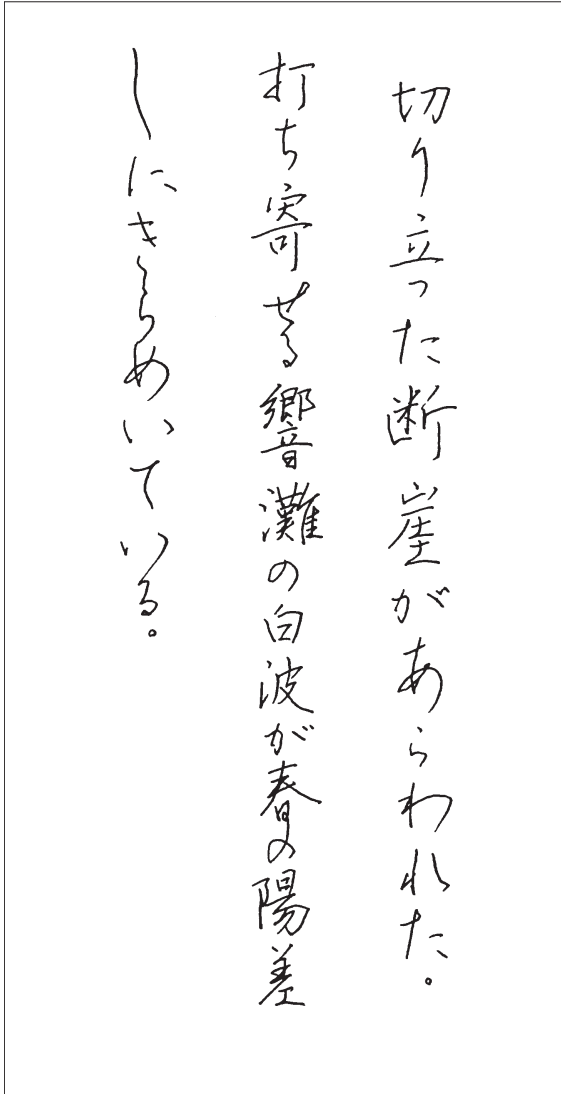 切り立った断崖があらわれた。
打ち寄せる響灘の白波が春の陽差
しにきらめいている。